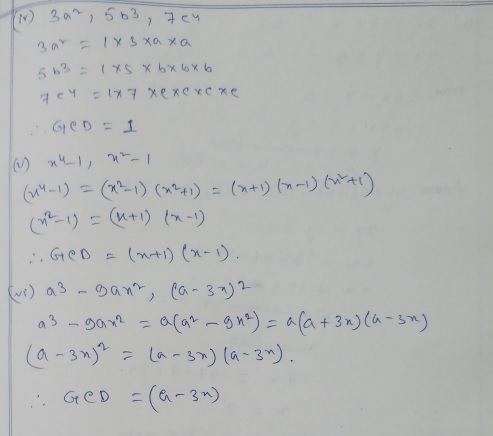 (iv) 3a², 5b³, 7c⁴
3a² = 1×3×a×a
5b³ = 1×5×b×b×b
7c⁴ = 1×7×c×c×c×c
∴ GCD = 1
(v) x⁴-1, x²-1
(x⁴-1) = (x²-1) (x²+1) = (x+1) (x-1) (x²+1)
(x²-1) = (x+1) (x-1)
∴ GCD = (x+1) (x-1).
(vi) a³ - 9ax², (a-3x)²
a³ - 9ax² = a(a² - 9x²) = a(a+3x) (a-3x)
(a-3x)² = (a-3x) (a-3x).
∴ GCD = (a-3x)